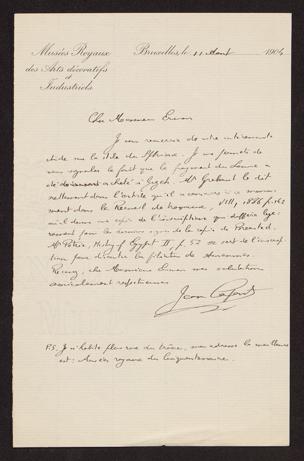 Musées Royaux
des Arts décoratifs
et
Industriels
Bruxelles, le 11 Août 1904
Cher Monsieur
Je vous remercie de votre intéressante
étude sur la stèle du Sphinx. Je me permets de
vous signaler le fait que le fragment du Louvre a
été acheté à Gizeh. Mr Grébaut le dit
réellement dans l'article qu'il a consacré à ce monu-
ment dans le Recueil de travaux, VIII, 1886 p.
où il donne une copie de l'inscription qui diffère légè-
rement pour les derniers signes de la copie de
Mr Petrie, History of Egypt II, p. 52 se sert de l'inscrip-
tion pour
Recevez, cher Monsieur mes salutations
Jean Capart
P.S. Je n'habite plus rue du trône, mon adresse la meilleure
est: Musées royaux du Cinquantenaire.